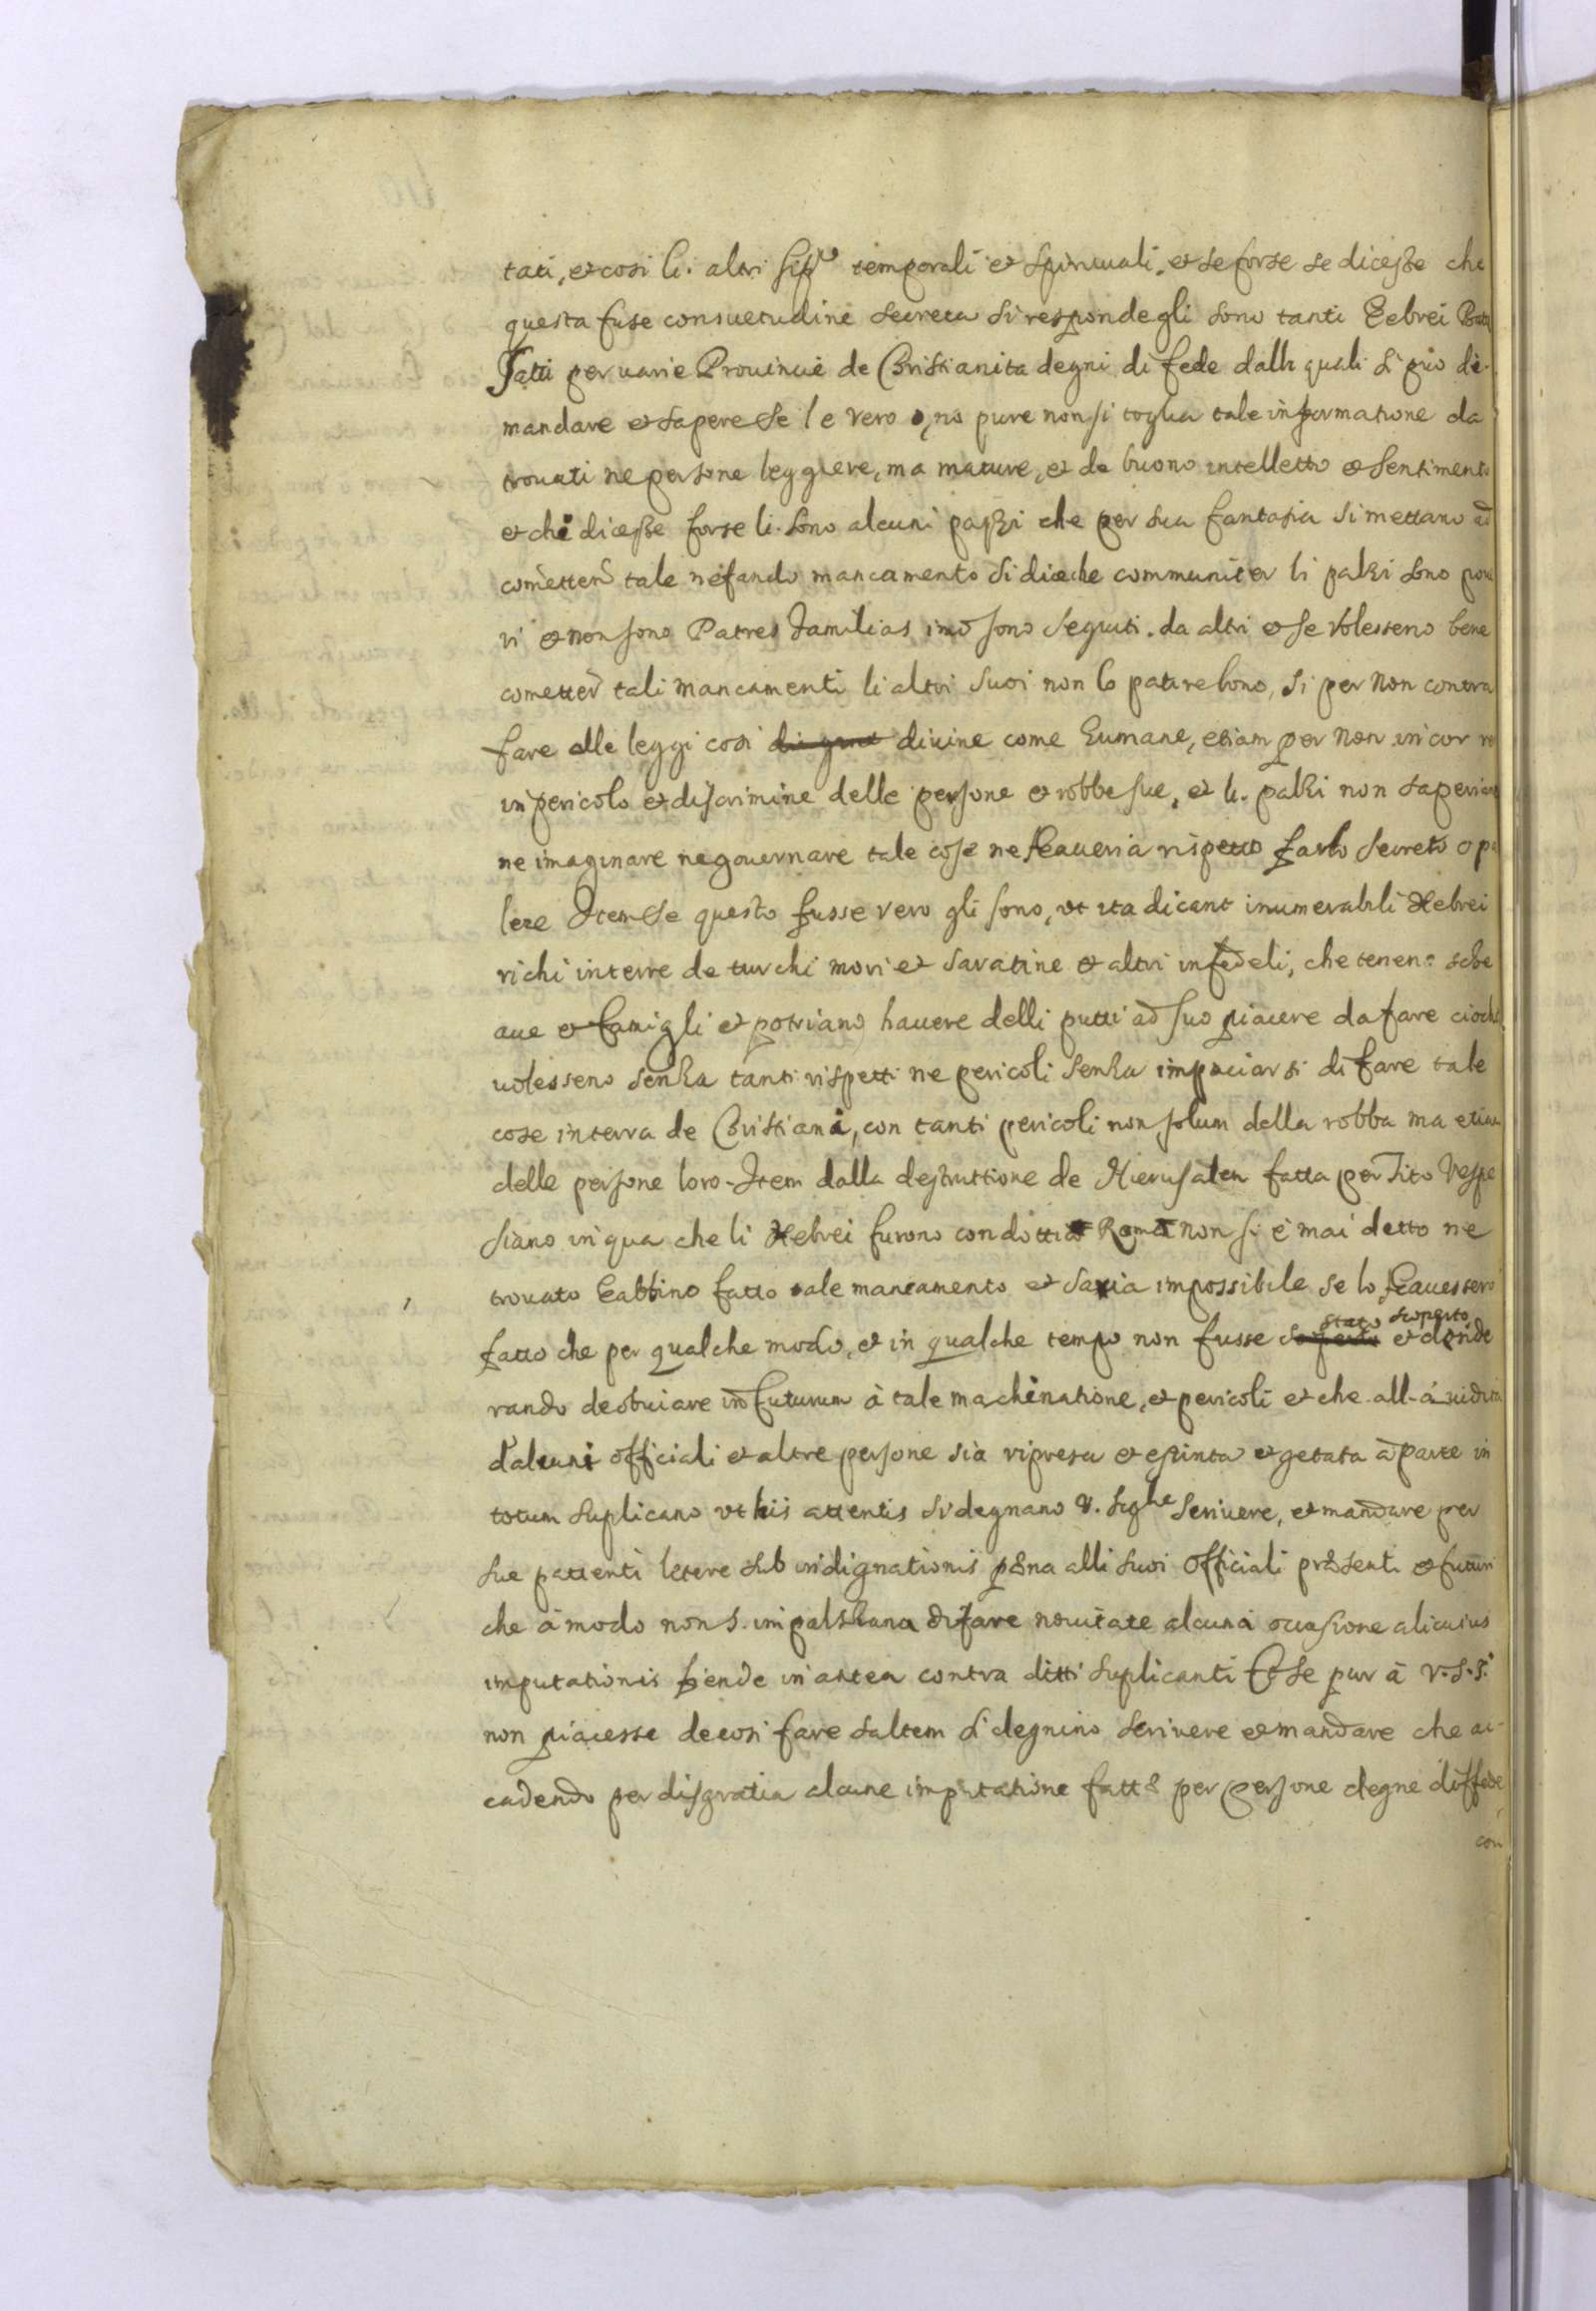 tati, et cosi li. altri temporali et Spirituali, et se forse se dicesse che
questa fuse consuetudine secreta si responde gli sono tanti hebrei Bati
fatti per varie Provincie de Christianita degni di fede dalli quali si puo di-
mandare et sapere se l e vero o, no pure non si toglia tale informatione da
trovati ne persone leggiere, ma mature, et de buono intelletto et sentimento
et chi dicesse forse li. sono alcuni pazzi che per sua fantasia si mettano ad
cometter tale nefando mancamento si dice che communiter li pazzi sono pove
ri et non sono Patres familias imo sono seguiti. da altri et se volesseno bene
cometter tali mancamenti li altri suoi non lo patirebono, si per non contra
fare alle leggi cosi divine come humane, etiam per non incor re
in pericolo et discrimine delle persone et robbe sue, et li. pazzi non saperiano
ne imaginare ne governare tale cose ne haveria rispetto farlo secreto o pa
lese Item se questo fusse vero gli sono, ut ita dicant inumerabili Hebrei
richi in terre de turchi mori et saratine et altri infedeli, che teneno schi
ave et famigli et potriano havere delli putti ad suo piacere da fare cioche
volesseno senza tanti rispetti ne pericoli senza impaciarsi di fare tale
cose in terra de Christiani, con tanti pericoli non solum della robba ma etiam
delle persone loro. Item dalla destruttione de Hierusalem fatta per Tito Vespe
siano in qua che li Hebrei furono condotti a Roma non si è mai detto ne
trovato habbino fatto tale mancamento et saria impossibile se lo havessero
fatto che per qualche modo, et in qualche tempo non fusse stato scoperto et dende
rando de obviare in futurum à tale machinatione, et pericoli et che all-
d'alcuni officiali et altre persone sia ripresa et espinta et getata a parte in
totum suplicano ut his attentis si degnano V. Sigre scrivere, et mandare per
sue pattenti letere sub indignationis pena alli suoi officiali presenti et futuri
che à modo non s. impalshana di fare novitate alcuna occasione alicuius
imputationis fiende in antea contra ditti suplicanti Et se pur à V. S. S.
non piacesse de cosi fare saltem si degnino scrivere et mandare che ac-
cadendo per disgratia alcune imputatione fatte per persone degne di fede
con